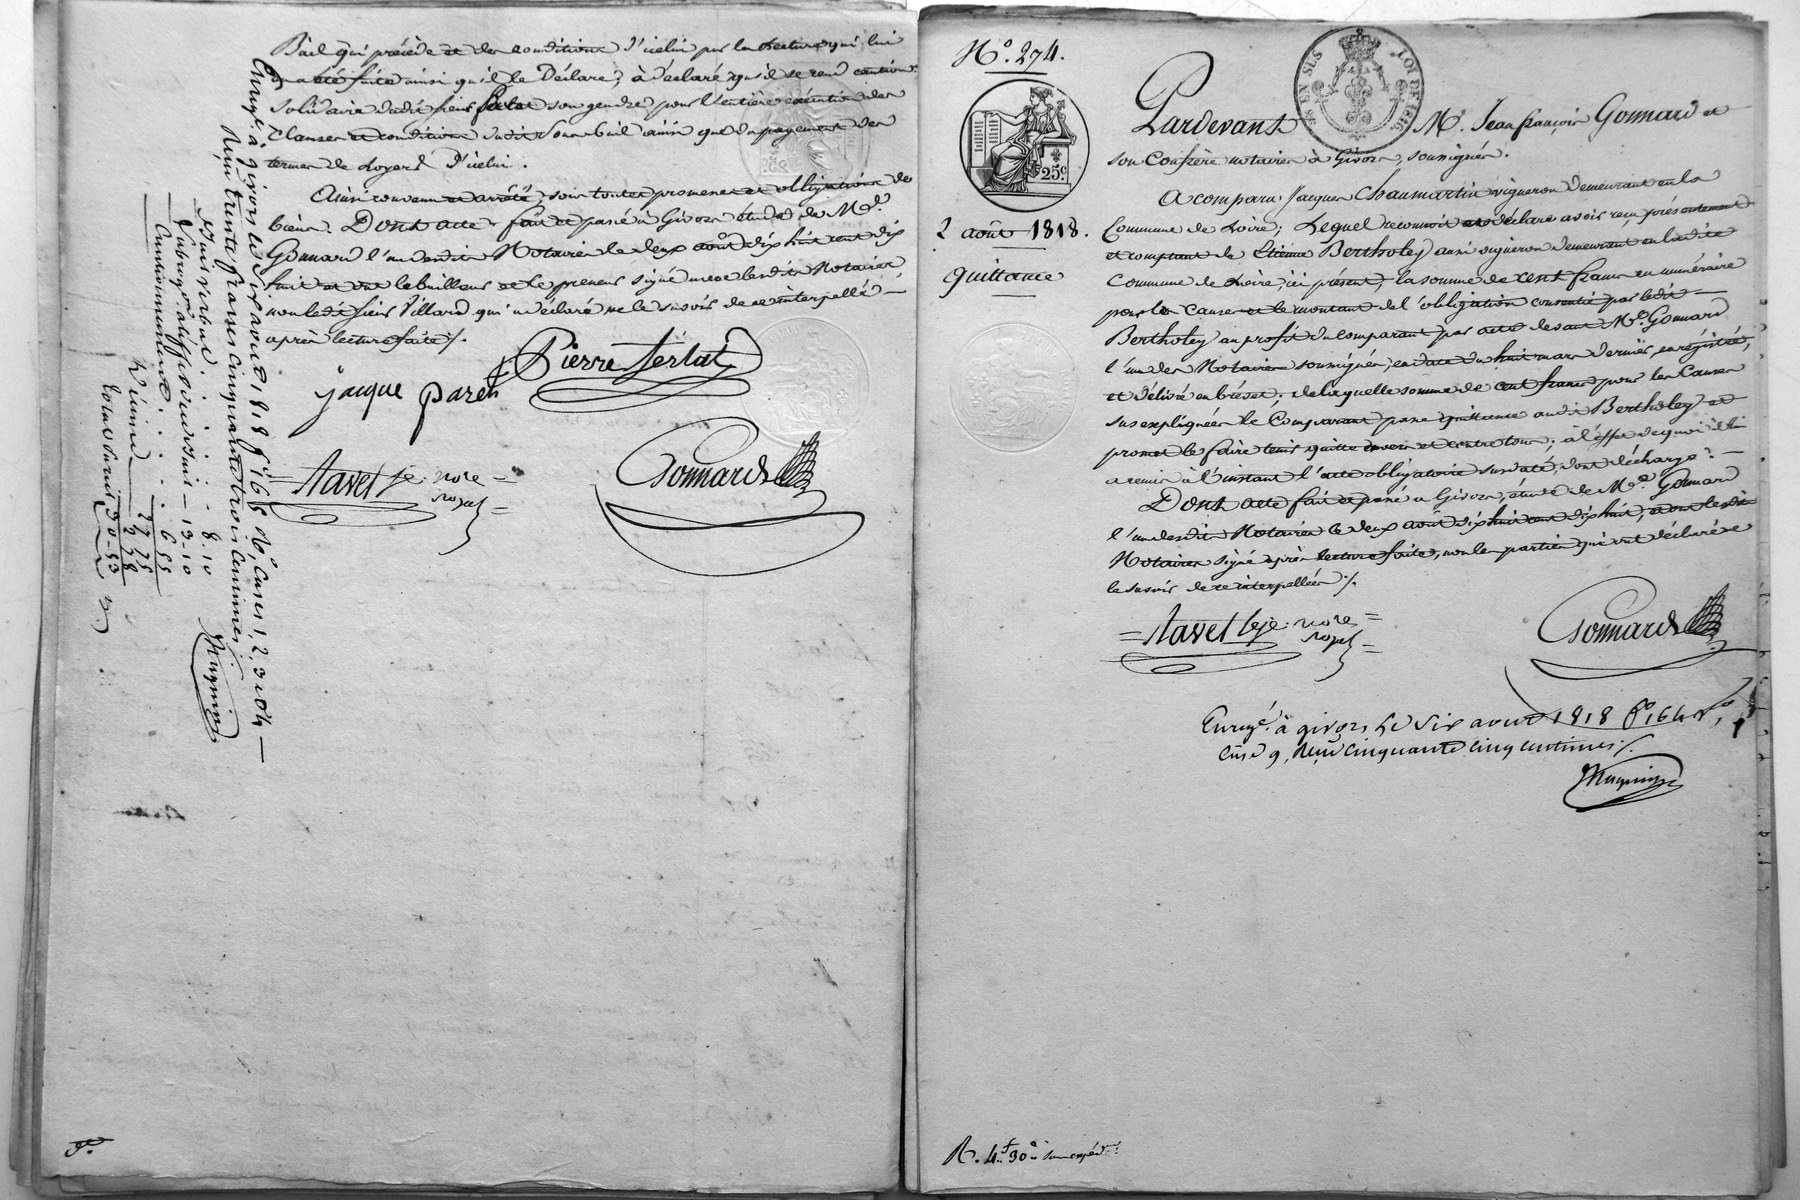 Bail qui précède et des conditions d'icelui par la lecture qui lui
en a été faite ainsi qu'il le Déclare, a déclaré qu'il se rend caution
solidaire dudit sieur son gendre pour l'entière exécution des
Clauses et conditions dudit Sous bail ainsi que du payement des
termes de Loyers d'icelui.
Ainsi convenu et arrêté, sous toutes promesses et obligations de
biens. Dont acte fait et passé à Givors étude de Me.
Gonnard l'un desdits Notaires le deux août dix huit cent dix
huit et ont le bailleur et Le preneur signé avec lesdits Notaires,
non ledit sieur Villard qui a déclaré ne le savoir de ce interpellé
après lecture faite /.
Pierre Serlat
jacque paret
Navet je. nore
royal
Gonnard
Enregé. à givors le six aout 1818 fo. 165 Ro, Cases 1, 2, 3 et 4
Reçu trente francs cinquante trois Centimes
8. 10
13-10
6 55
27 75
2 78
30-53
N°. 274.
25c.
LOI DE 1816
2 août 1818.
quittance
Pardevant Me. Jean françois Gonnard et
son Confrère notaires à Givors, soussignés.
A comparu Jacques Chaumartin vigneron demeurant en la
Commune de Loire; Lequel reconnoit et déclare avoir reçu présentement
et comptant de Etienne Bertholey aussi vigneron demeurant en ladite
Commune de Loire, ici présent, la somme de cent francs en numéraire
pour les Causes et le montant de l'obligation consentie par ledit
Bertholey au profit du comparant par acte devant Me. Gonnard
l'un des Notaires soussignés, en date du huit mars dernier, enregistré,
et délivré en brévet; de laquelle somme de cent francs pour les Causes
sus expliquées le Comparant passe quittance audit Bertholey et
promet le faire tenir quitte envers et contre tous; à l'effet de quoi il lui
a remis à l'instant l'acte obligatoire susdaté, dont décharge.
Dont acte fait et passé à Givors, étude de Me. Gonnard
l'un desdits Notaires le deux août dix huit cent dix huit, et ont lesdits
Notaires signé après lecture faite, non les parties qui ont déclaré ne
le savoir de ce interpellées /.
Navet je. nore
royal
Gonnard
Enregé. à givors le Six aout 1818 fo. 164
Case 9, Reçu cinquante cinq centimes /.
R. 4f 30c